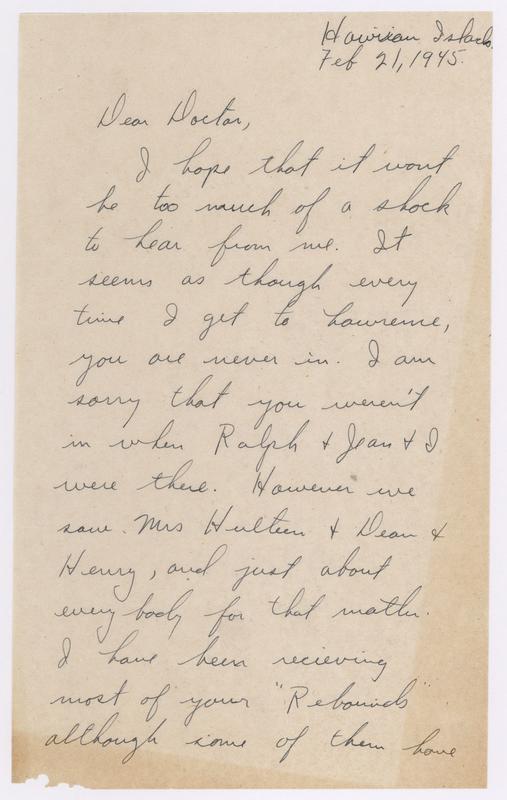 Hawiian Islands.
Feb 21, 1945.
Dear Doctor,
I hope that it wont
be too much of a shock
to hear from me. It
seems as though every
time I get to Lawrence,
you are never in. I am
sorry that you weren't
in when Ralph & Jean & I
were there. However we
saw Mrs Hulteen & Dean &
Henry, and just about
every body for that matter.
I have been recieving
most of your "Rebounds"
although some of them have